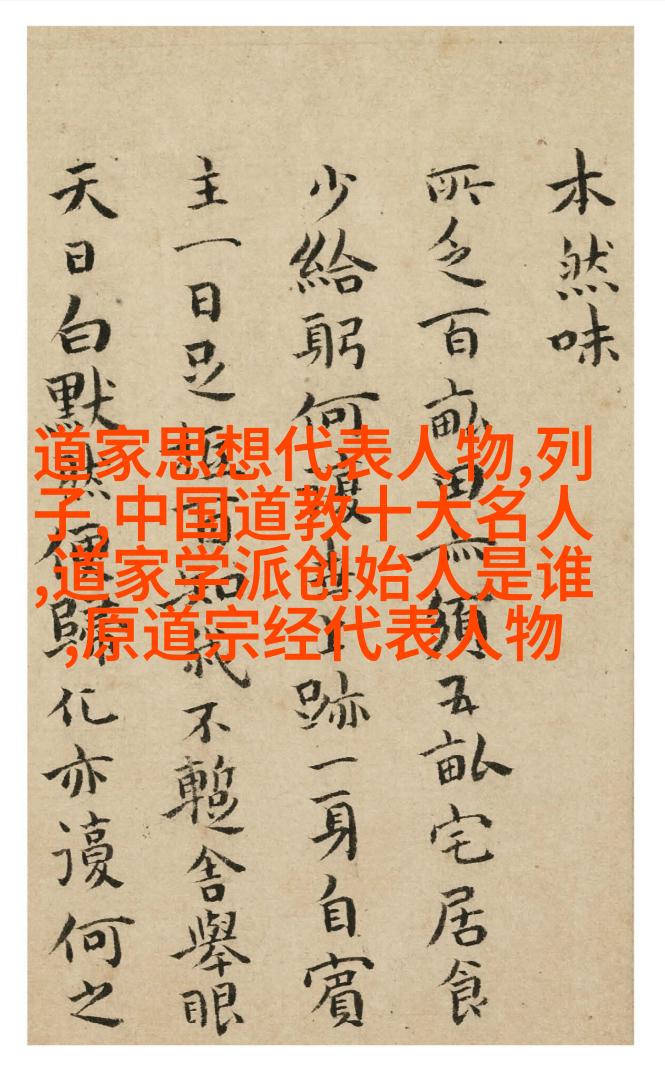 本然味
所乏百畝田須五畝宅居食
少給躬何跡一身自賓
主一日足不暫舍舉眼
天日白默然歸化亦何之
道家思想代表人物,列
子,中国道教十大名人
,道家学派创始人是谁
,原道宗经代表人物